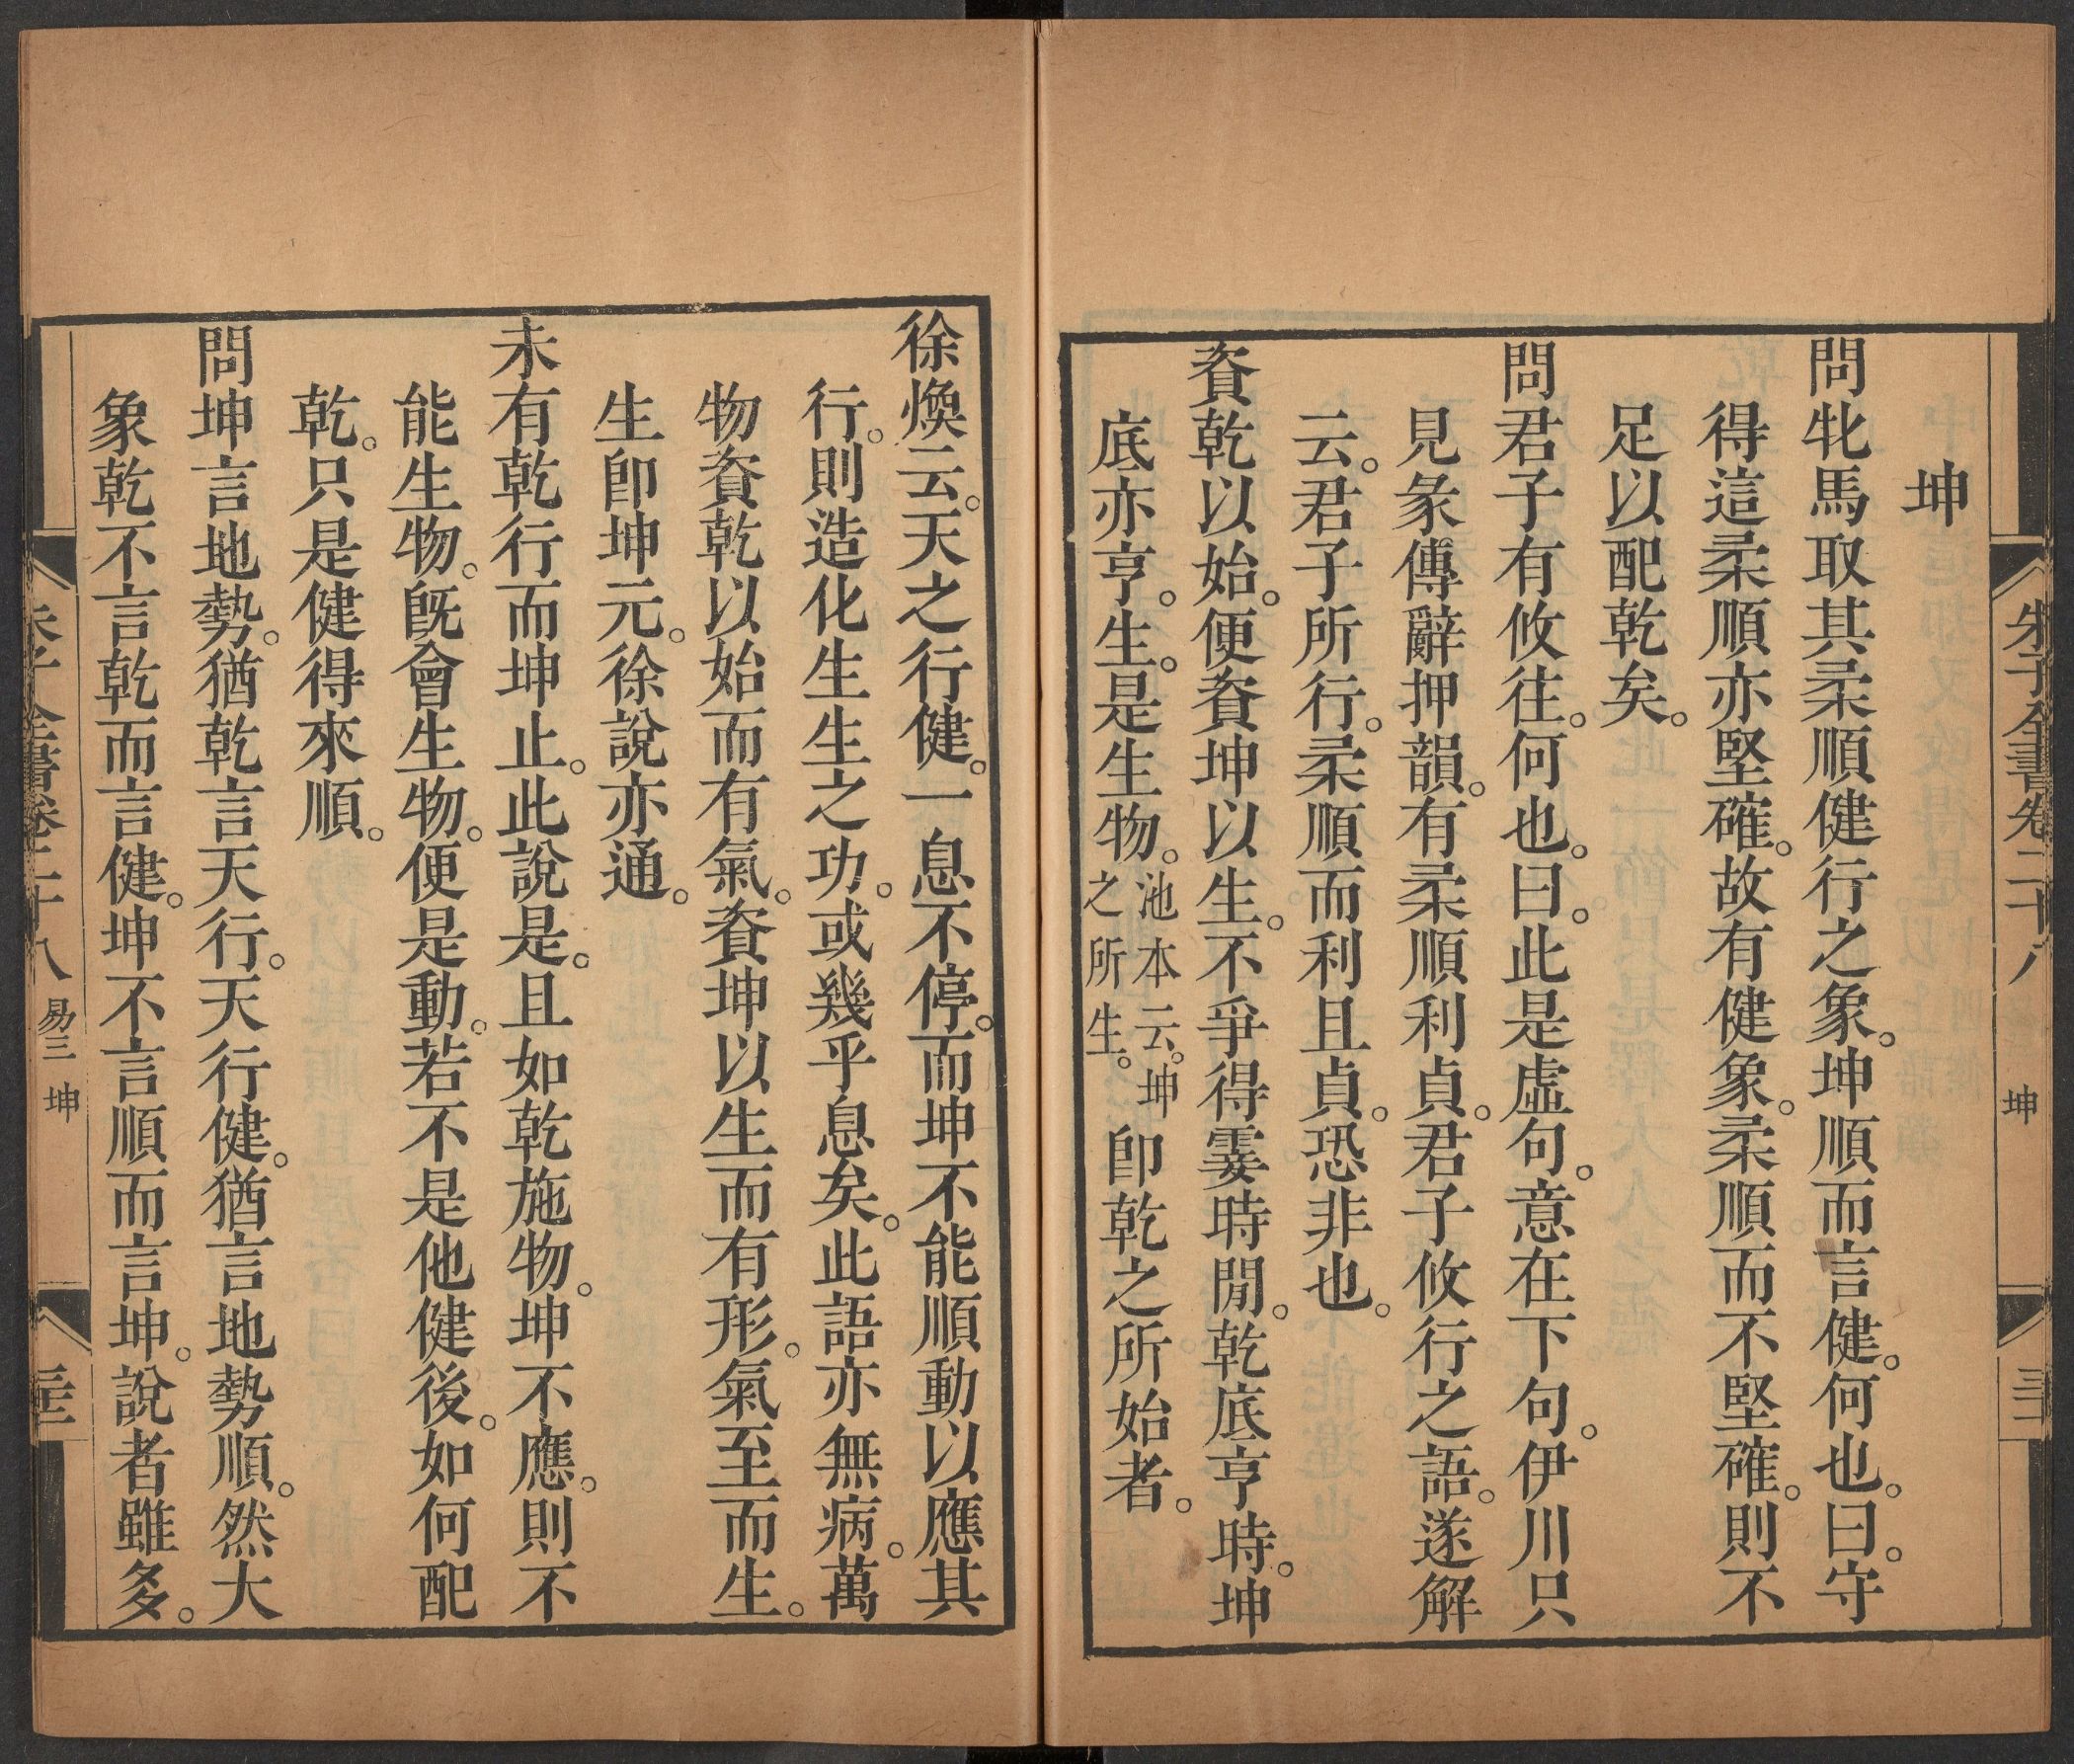 朱子全書卷二十八
坤
坤
問牝馬取其柔順健行之象。坤順而言健。何也。曰。守
得這柔順亦堅確。故有健象。柔順而不堅確。則不
足以配乾矣。
問君子有攸往。何也。曰。此是虛句。意在下句。伊川只
見彖傳辭押韻。有柔順利貞。君子攸行之語。遂解
云。君子所行。柔順而利且貞。恐非也。
資乾以始。便資坤以生。不爭得霎時閒。乾底亨時。坤
底亦亨。生。是生物。池本云。坤之所生。卽乾之所始者。
徐煥云。天之行健。一息不停。而坤不能順動以應其
行。則造化生生之功。或幾乎息矣。此語亦無病。萬
物資乾以始而有氣。資坤以生而有形。氣至而生。
生卽坤元。徐說亦通。
未有乾行而坤止。此說是。且如乾施物。坤不應。則不
能生物。旣會生物。便是動。若不是他健後。如何配
乾。只是健得來順。
問坤言地勢。猶乾言天行。天行健。猶言地勢順。然大
象乾不言乾而言健。坤不言順而言坤。說者雖多。
朱子全書卷二十八
易三 坤